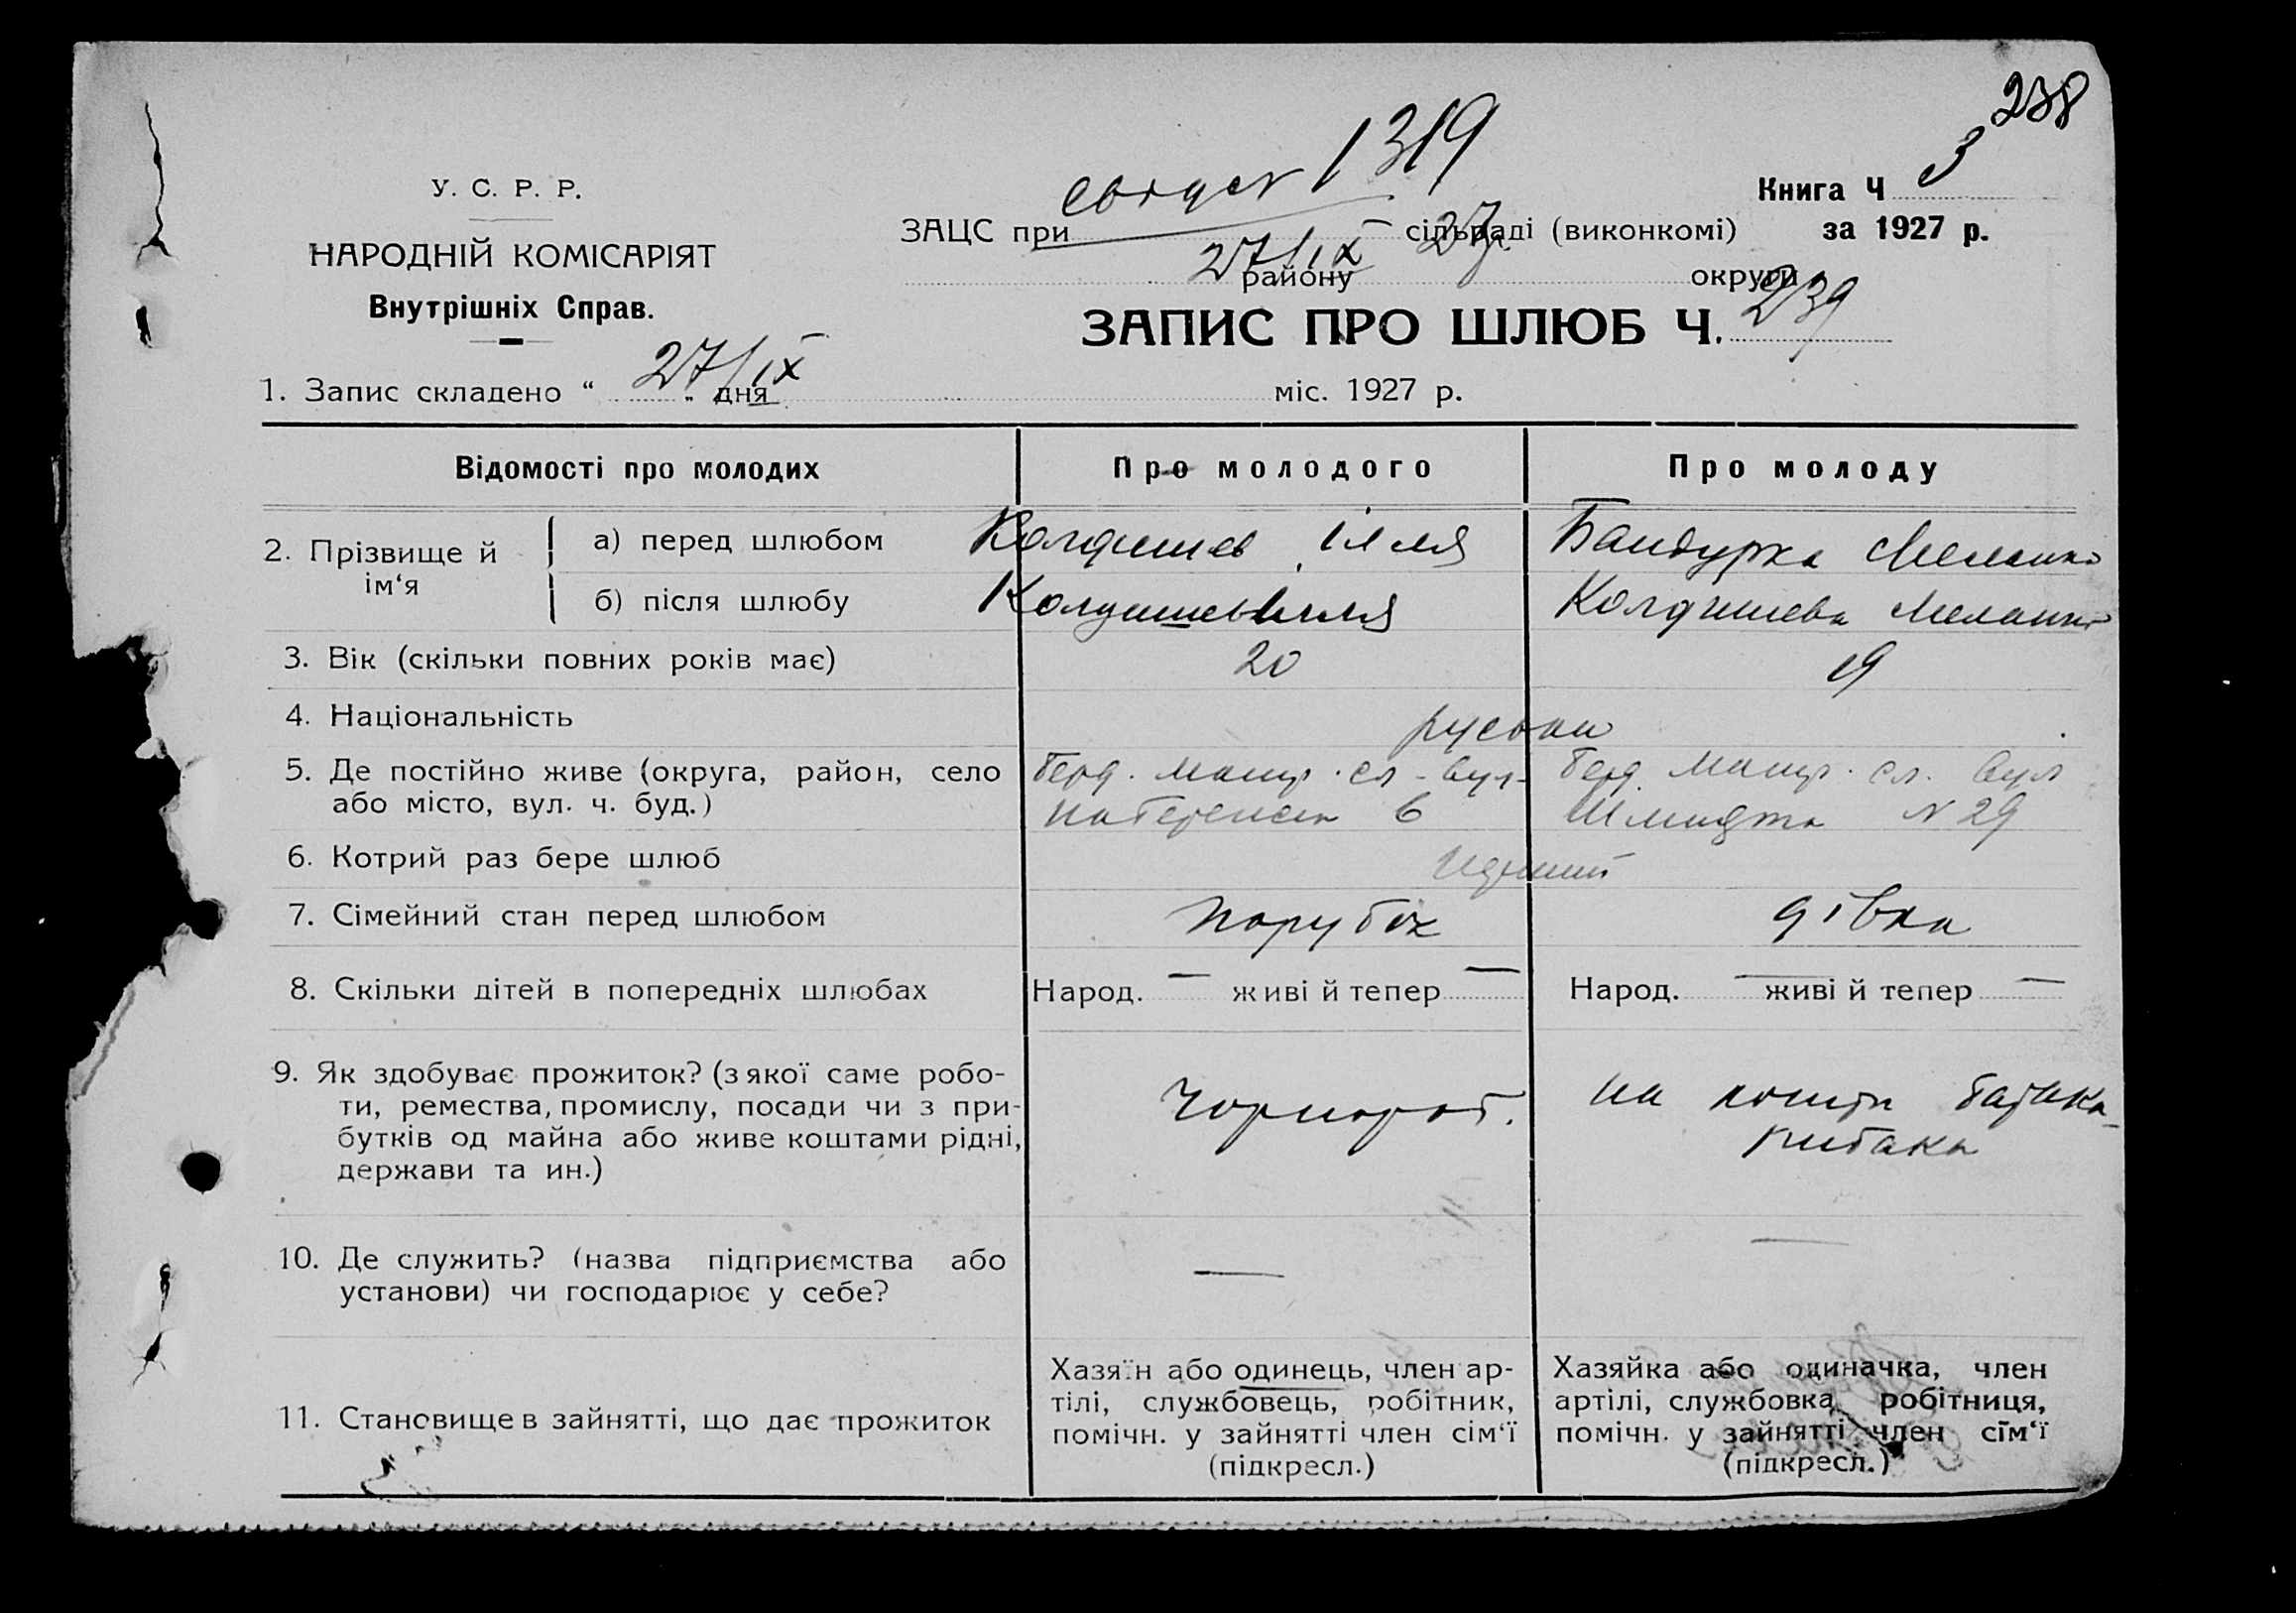 238
У. С. Р. Р.
НАРОДНІЙ КОМІСАРІЯТ
Внутрішніх Справ.
1319
Книга Ч 3
за 1927 р.
ЗАЦС при сільраді (виконкомі)
27/IX 27р.
району округи
ЗАПИС ПРО ШЛЮБ Ч. 239
1. Запис складено “ 27/IX „ дня міс. 1927 р.
Відомості про молодих Про молодого Про молоду
2. Прізвище й ім‘я
а) перед шлюбом Колдишев Ілля Бандурка Меланія
б) після шлюбу Колдишев Ілля Колдишева Меланія
3. Вік (скільки повних років має) 20 19
4. Національність руськи
5. Де постійно живе (округа, район, село Берд. сл. вул. Берд. сл. вул
або місто, вул. ч. буд.) 6 Шмидта N 29
6. Котрий раз бере шлюб
7. Сімейний стан перед шлюбом парубок дівка
8. Скільки дітей в попередніх шлюбах Народ. — живі й тепер — Народ. — живі й тепер —
9. Як здобуває прожиток? (з якої саме робо-
ти, ремества, промислу, посади чи з при-
бутків од майна або живе коштами рідні,
держави та ин.)
Чорнороб.
на кошти батька
рибака
10. Де служить? (назва підприємства або
установи) чи господарює у себе?
—
—
11. Становище в зайнятті, що дає прожиток
Хазяїн або одинець, член ар-
тілі, службовець, робітник,
помічн. у зайнятті член сім‘ї
(підкресл.)
Хазяйка або одиначка, член
артілі, службовка, робітниця,
помічн. у зайнятті член сім‘ї
(підкресл.)